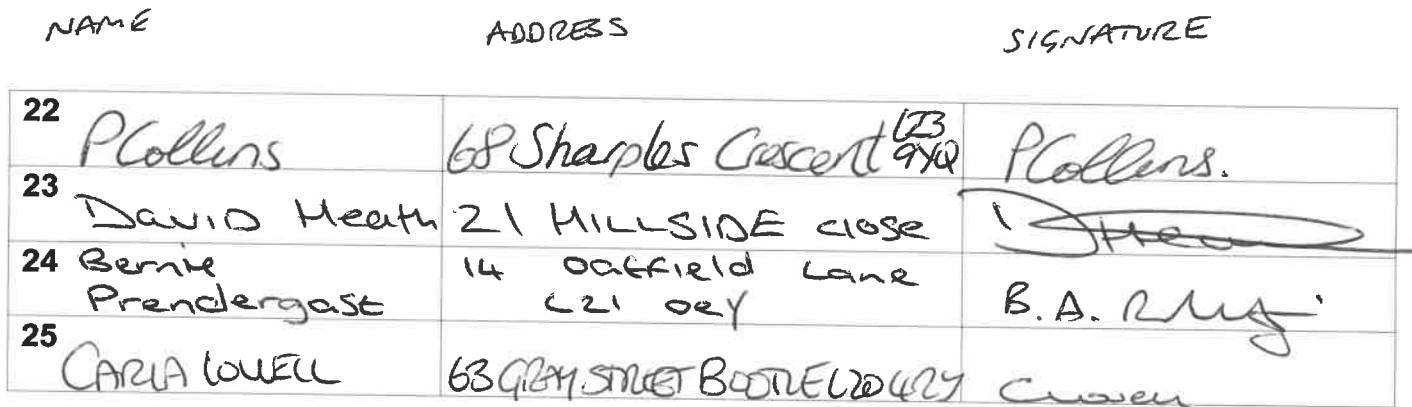 NAME ADDRESS SIGNATURE
22 PCollins 68 Sharples Crescent L23 9YQ PCollins.
23 David Heath 21 HILLSIDE close DHea
24 Bernie 14 Oatfield Lane
Prendergast L21 0EY B. A.
25 CARLA LOWELL 63 GRAY STREET BOOTLE L20 4RY